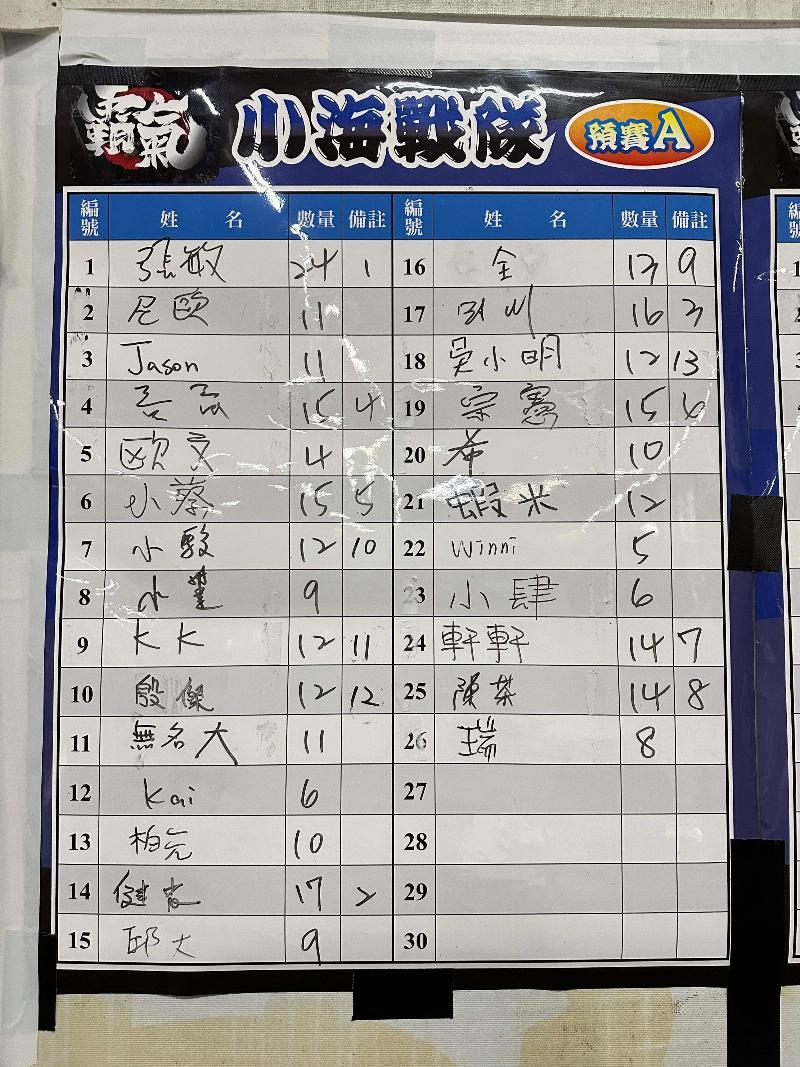 霸氣 小海戰隊 預賽A
編號 姓名 數量 備註 編號 姓名 數量 備註
1 張敏 24 1 16 全 13 9
2 尼歐 11 17 16 3
3 Jason 11 18 吳小明 12 13
4 15 4 19 宗憲 15 6
5 歐文 4 20 希 10
6 小蔡 15 5 21 蝦米 12
7 小駿 12 10 22 Winni 5
8 小 9 23 小肆 6
9 KK 12 11 24 軒軒 14 7
10 殷傑 12 12 25 陳菜 14 8
11 無名大 11 26 瑞 8
12 Kai 6 27
13 柏元 10 28
14 健 17 2 29
15 邱大 9 30